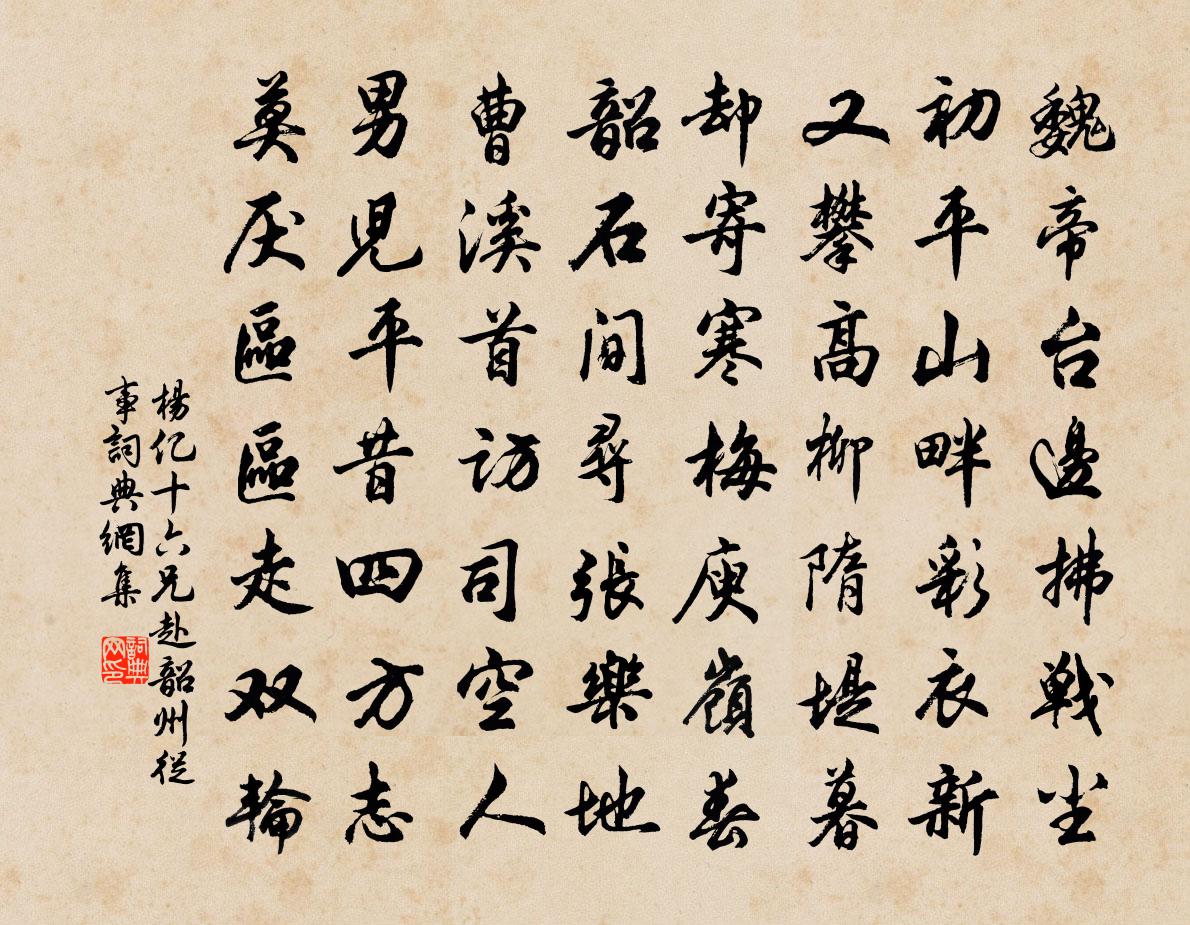 魏帝台邊拂戦尘
初平山畔彩衣新
又攀高柳隋堤暮
却寄寒梅庾嶺春
韶石间尋張樂地
曹溪首访司空人
男児平昔四方志
莫厌區區走双輪
楊亿十六兄赴韶州從
事詞典網集
詞典
网印